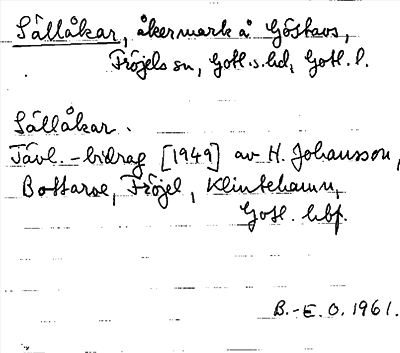 Sållåkar, åkermark å Göstavs,
Fröjels sn, Gotl. s. hd, Gotl. l.
Sållåkar.
Tävl.-bidrag [1949] av H. Johansson,
Bottarve, Fröjel, Klintehamn,
Gotl. hbf.
B.-E. O. 1961.